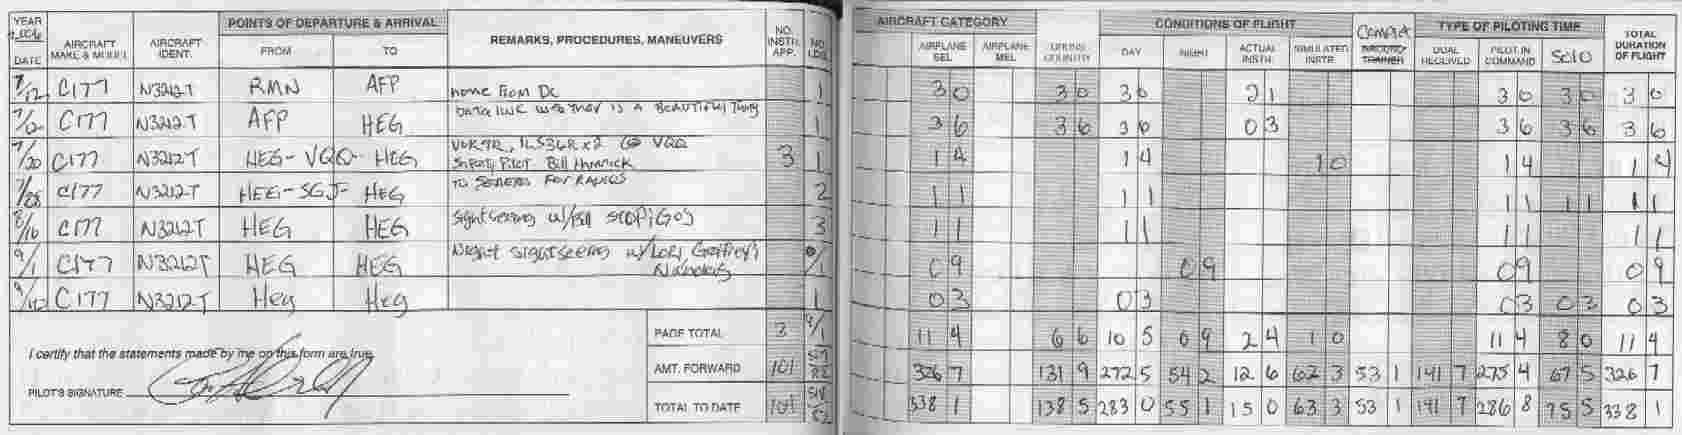 YEAR POINTS OF DEPARTURE & ARRIVAL AIRCRAFT CATEGORY CONDITIONS OF FLIGHT TYPE OF PILOTING TIME
DATE AIRCRAFT MAKE & MODEL AIRCRAFT IDENT. FROM TO REMARKS, PROCEDURES, MANEUVERS NO. INSTR. APP. NO. LDG. AIRPLANE SEL AIRPLANE MEL CROSS COUNTRY DAY NIGHT ACTUAL INSTR. SIMULATED INSTR. TRAINER DUAL RECEIVED PILOT IN COMMAND Solo TOTAL DURATION OF FLIGHT
7/12 C177 N3212T RMN AFP home From DC 1 3 0 3 0 3 0 2 1 3 0 3 0 3 0
7/12 C177 N3212T AFP HEG Data link weather is a beautiful thing 1 3 6 3 6 3 6 0 3 3 6 3 6 3 6
7/20 C177 N3212T HEG- VQQ- HEG ILS36R x2 @ VQQ 3 1 1 4 1 4 1 0 1 4 1 4
Safety Pilot Bill
7/28 C177 N3212T HEG-SGJ- HEG to 2 1 1 1 1 1 1 1 1 1 1
8/16 C177 N3212T HEG HEG Sightseeing w/ 3 1 1 1 1 1 1 1 1
9/1 C177 N3212T HEG HEG Night sightseeing w/Lori, 0/1 0 9 0 9 0 9 0 9
9/12 C177 N3212T Heg Heg 1 0 3 0 3 0 3 0 3 0 3
I certify that the statements made by me on this form are true.
PILOT'S SIGNATURE
PAGE TOTAL 3 9/1 11 4 6 6 10 5 0 9 2 4 1 0 11 4 8 0 11 4
AMT. FORWARD 101 326 7 131 9 272 5 54 2 12 6 62 3 53 1 141 7 275 4 67 5 326 7
TOTAL TO DATE 104 338 1 138 5 283 0 55 1 15 0 63 3 53 1 141 7 286 8 75 5 338 1